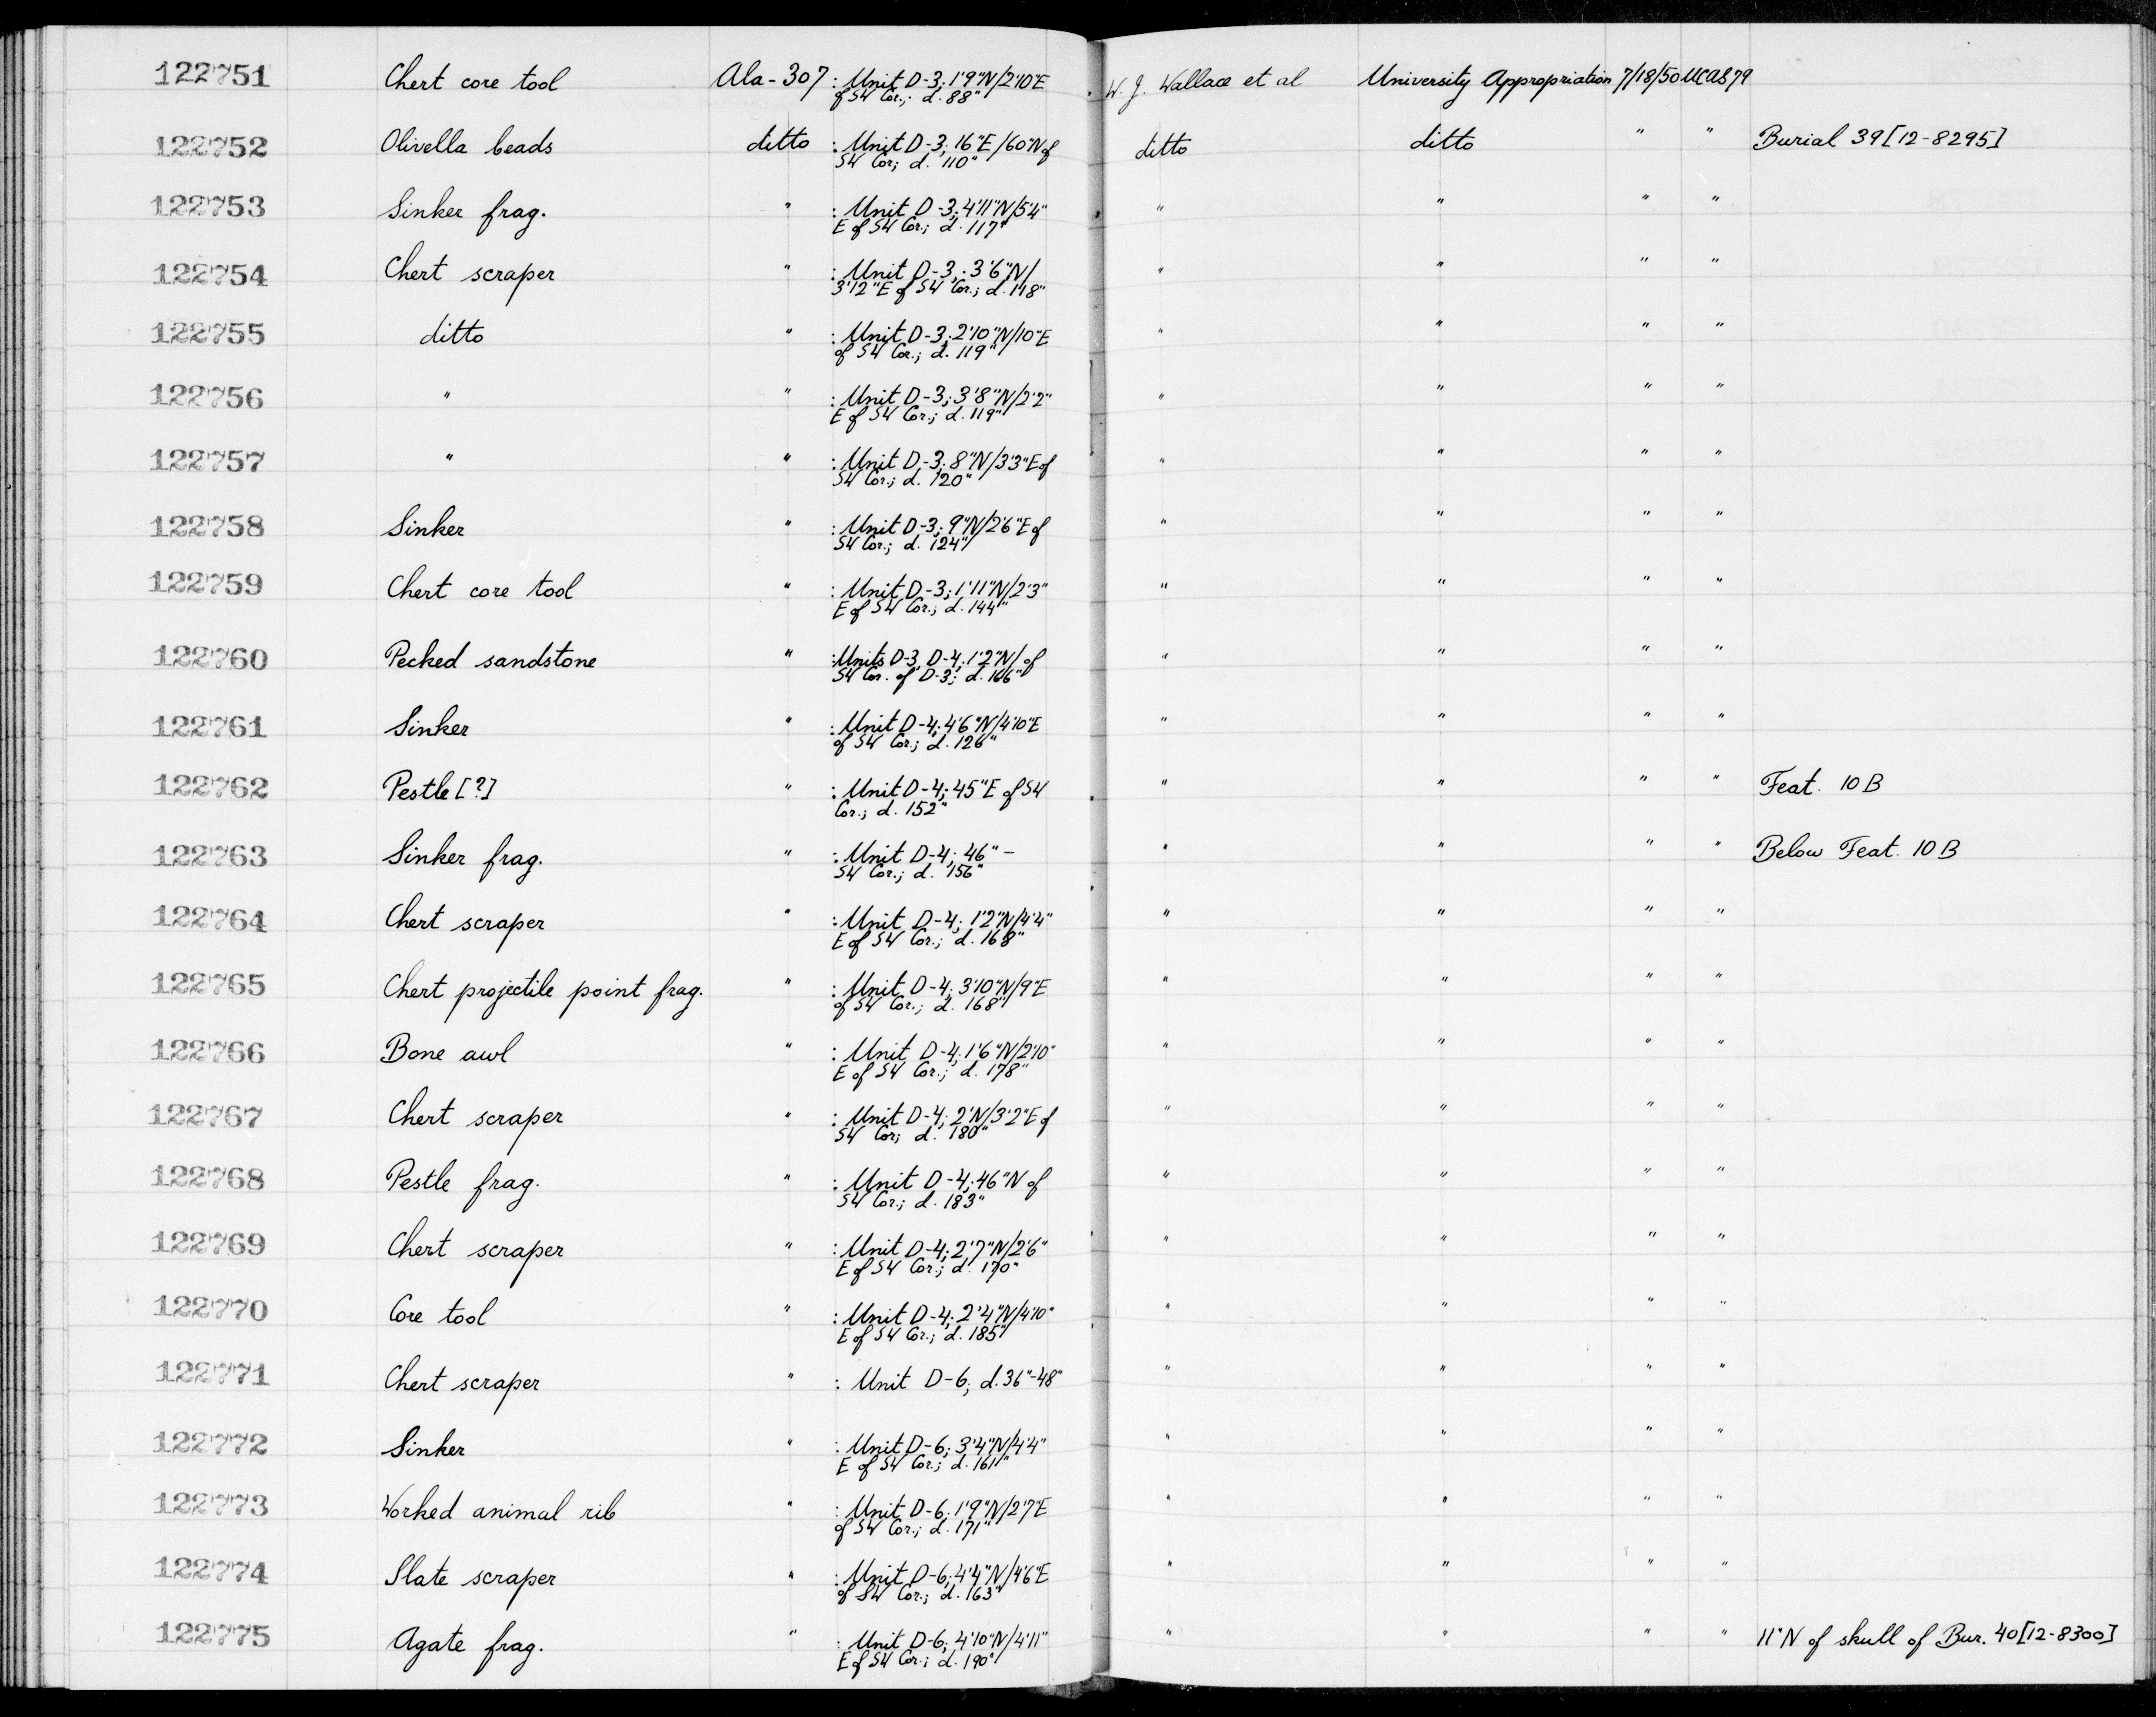 122751 Chert core tool Ala-307 : Unit D-3; 1'9"N/2'10"E W. J. Wallace et al University Appropriation 7/18/50 UCAS 79
of SW Cor.; d. 88"
122752 Olivella beads ditto : Unit D-3; 16"E/60"N of ditto ditto " " Burial 39 [12-8295]
SW Cor; d. 110"
122753 Sinker frag. " : Unit D-3; 4'11"N/5'4" " " " "
E of SW Cor.; d. 117"
122754 Chert scraper " : Unit D-3; 3'6"N/ " " " "
3'12"E of SW Cor.; d. 118"
122755 ditto " : Unit D-3; 2'10"N/10"E " " " "
of SW Cor.; d. 119"
122756 " " : Unit D-3; 3'8"N/2'2" " " " "
E of SW Cor.; d. 119"
122757 " " : Unit D-3; 8"N/3'3"E of " " " "
SW Cor.; d. 120"
122758 Sinker " : Unit D-3; 9"N/2'6"E of " " " "
SW Cor.; d. 124"
122759 Chert core tool " : Unit D-3; 1'11"N/2'3" " " " "
E of SW Cor.; d. 144"
122760 Pecked sandstone " : Units D-3, D-4; 1'2"N/ of " " " "
SW Cor. of D-3; d. 166"
122761 Sinker " : Unit D-4; 4'6"N/4'10"E " " " "
of SW Cor.; d. 126"
122762 Pestle [?] " : Unit D-4; 45"E of SW " " " " Feat. 10B
Cor.; d. 152"
122763 Sinker frag. " : Unit D-4; 46" - " " " " Below Feat. 10B
SW Cor.; d. 156"
122764 Chert scraper " : Unit D-4; 1'2"N/4'4" " " " "
E of SW Cor.; d. 168"
122765 Chert projectile point frag. " : Unit D-4; 3'10"N/9"E " " " "
of SW Cor.; d. 168"
122766 Bone awl " : Unit D-4; 1'6"N/2'10" " " " "
E of SW Cor.; d. 178"
122767 Chert scraper " : Unit D-4; 2'N/3'2"E of " " " "
SW Cor; d. 180"
122768 Pestle frag. " : Unit D-4; 46"N of " " " "
SW Cor.; d. 183"
122769 Chert scraper " : Unit D-4; 2'7"N/2'6" " " " "
E of SW Cor.; d. 170"
122770 Core tool " : Unit D-4; 2'4"N/4'10" " " " "
E of SW Cor.; d. 185"
122771 Chert scraper " : Unit D-6; d. 36"-48" " " " "
122772 Sinker " : Unit D-6; 3'4"N/4'4" " " " "
E of SW Cor.; d. 161"
122773 Worked animal rib " : Unit D-6; 1'9"N/2'7"E " " " "
of SW Cor.; d. 171"
122774 Slate scraper " : Unit D-6; 4'4"N/4'6"E " " " "
of SW Cor.; d. 163"
122775 Agate frag. " : Unit D-6; 4'10"N/4'11" " " " " 11"N of skull of Bur. 40 [12-8300]
E of SW Cor.; d. 190"